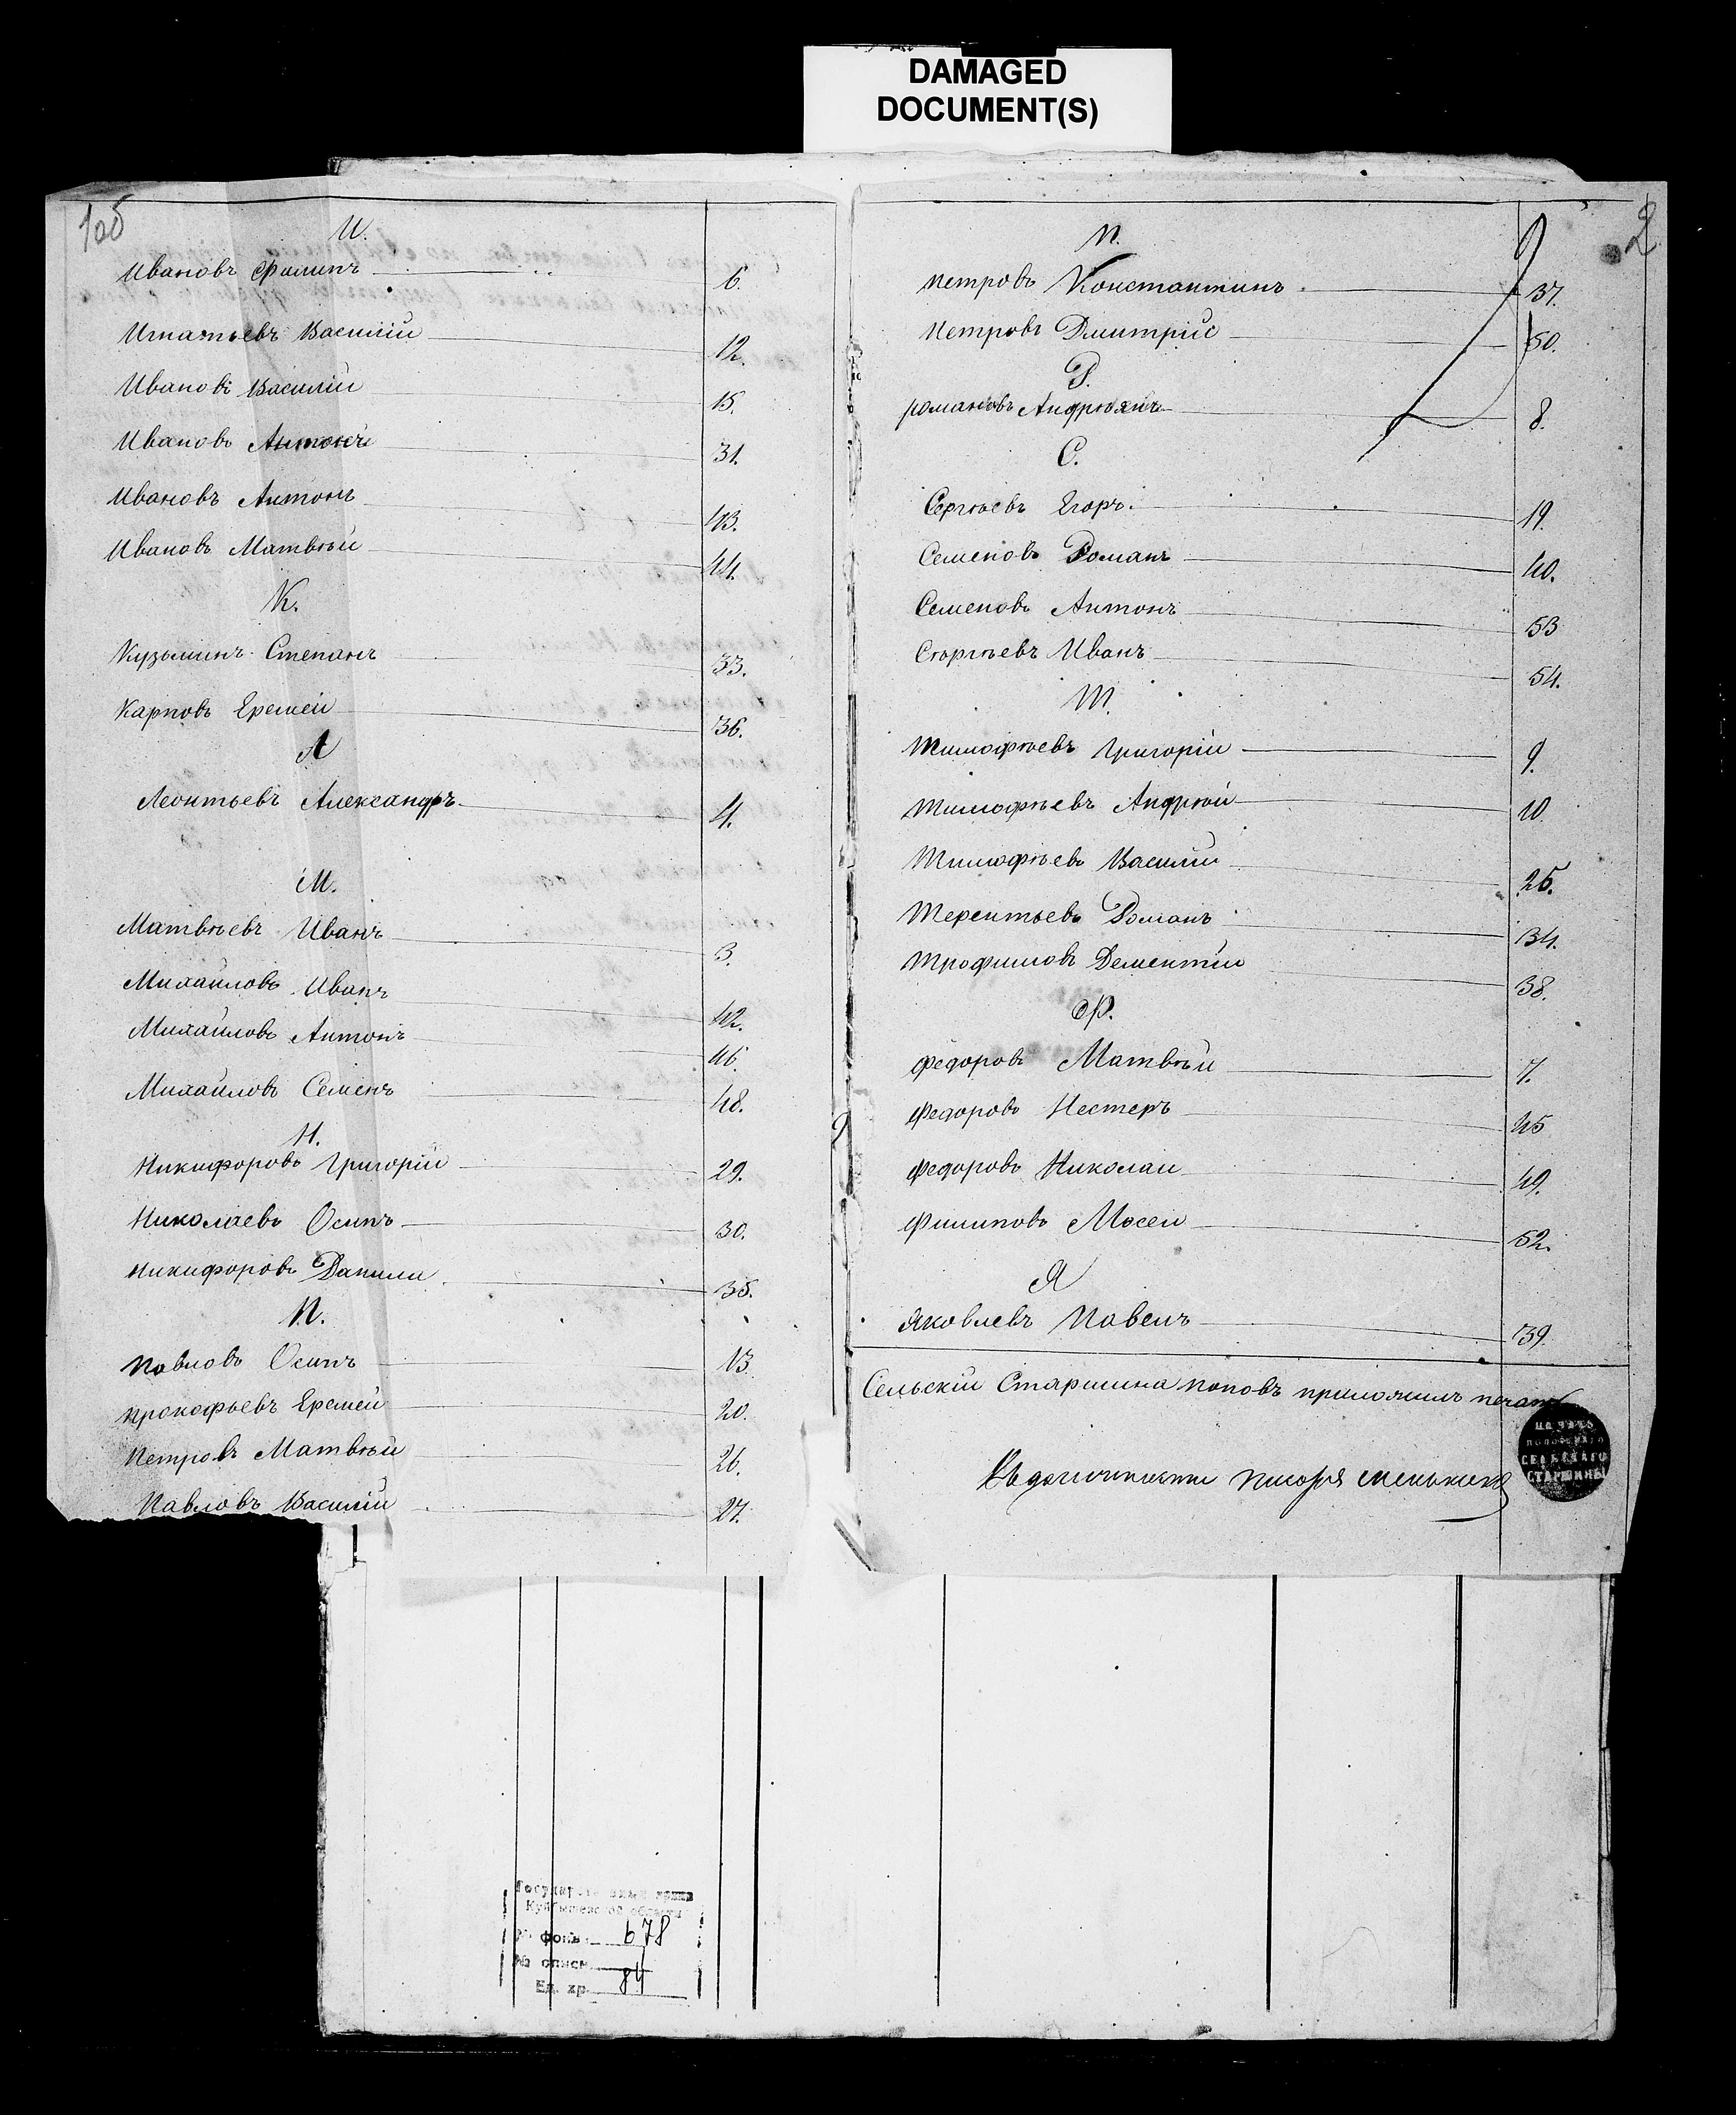 DAMAGED
DOCUMENT(S)
1об
И.
Ивановъ Филипъ 6.
Игнатьевъ Василiй 12.
Ивановъ Василiй 15.
Ивановъ Антонъ 31.
Ивановъ Антонъ 43.
Ивановъ Матвѣй 44.
К.
Кузьминъ Степанъ 33.
Карповъ Еремей 36.
Л
Леонтьевъ Александръ 4.
М.
Матвѣевъ Иванъ 3.
Михайловъ Иванъ 42.
Михайловъ Антонъ 46.
Михайловъ Семенъ 48.
Н.
Никифоровъ Григорiй 29.
Николаевъ Осипъ 30.
Никифоровъ Данили 35.
П.
Павловъ Осипъ 13
Прокофьевъ Еремей 20.
Петровъ Матвѣй 26.
Павловъ Василiй 27.
2
П.
Петровъ Константинъ 37.
Петровъ Дмитрiй 50.
Р.
Романовъ Андрюянъ 8.
С.
Сергѣевъ Егоръ 19.
Семеновъ Романъ 40.
Семеновъ Антонъ 53
Сергѣевъ Иванъ 54.
Т.
Тимофѣевъ Григорiй 9.
Тимофѣевъ Андрѣй 10.
Тимофѣевъ Василiй 25.
Терентьевъ Романъ 34.
Трофимовъ Дементiй 38.
Ф.
Федоровъ Матвѣй 7.
Федоровъ Нестеръ 45
Федоровъ Николай 49.
Филиповъ Мосеи 52.
Я
Яковлевъ Павелъ 39.
Сельскiй Старшина Поповъ приложилъ печать
СЕЛЬСКАГО
СТАРШИНЫ
Куйбышевской области
№ фонд. 678
№ описи
Ед. хр. 84